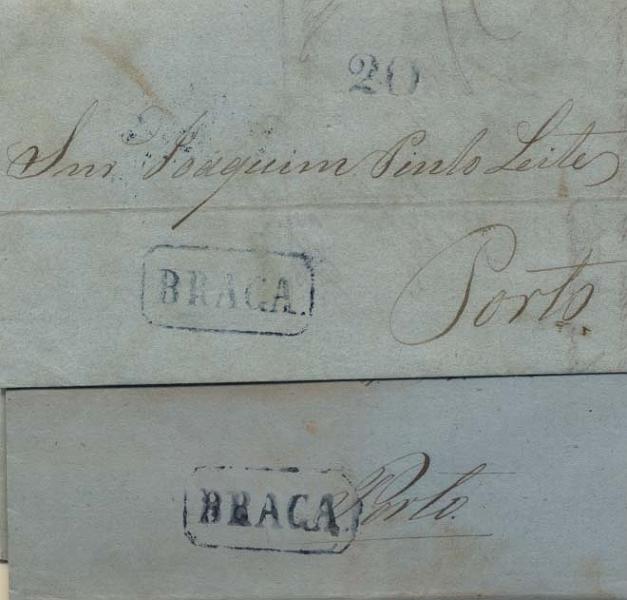 20
Snr Joaquim Pinto Leite
BRAGA.
Porto
BRAGA
Porto.